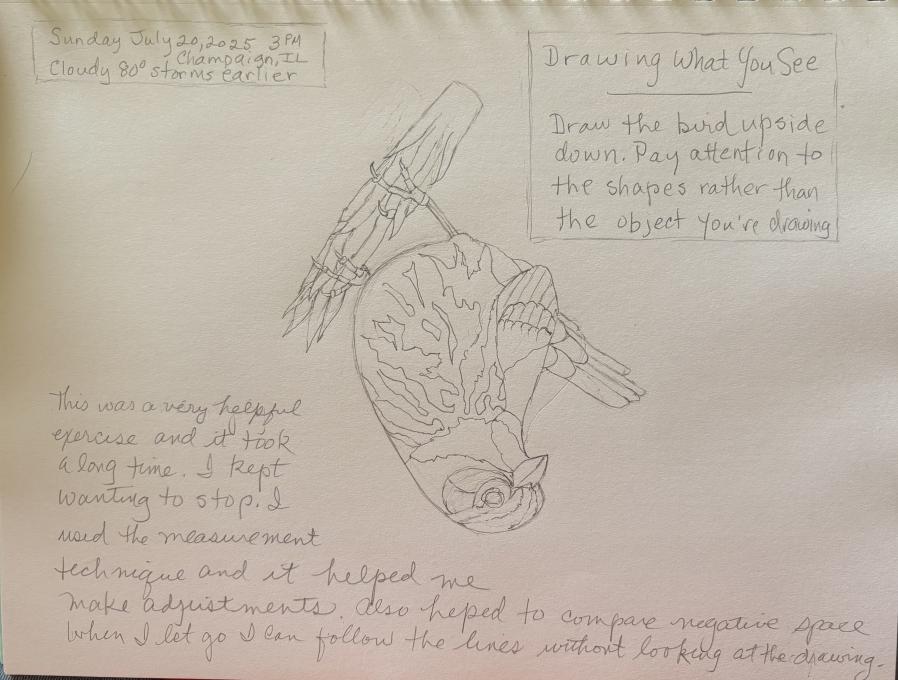 Sunday July 20, 2025 3 PM
Champaign, IL
Cloudy 80° storms earlier
Drawing What You See
Draw the bird upside
down. Pay attention to
the shapes rather than
the object you're drawing
This was a very helpful
exercise and it took
a long time. I kept
wanting to stop. I
used the measurement
technique and it helped me
make adjustments. Also heped to compare negative space
When I let go I can follow the lines without looking at the drawing.